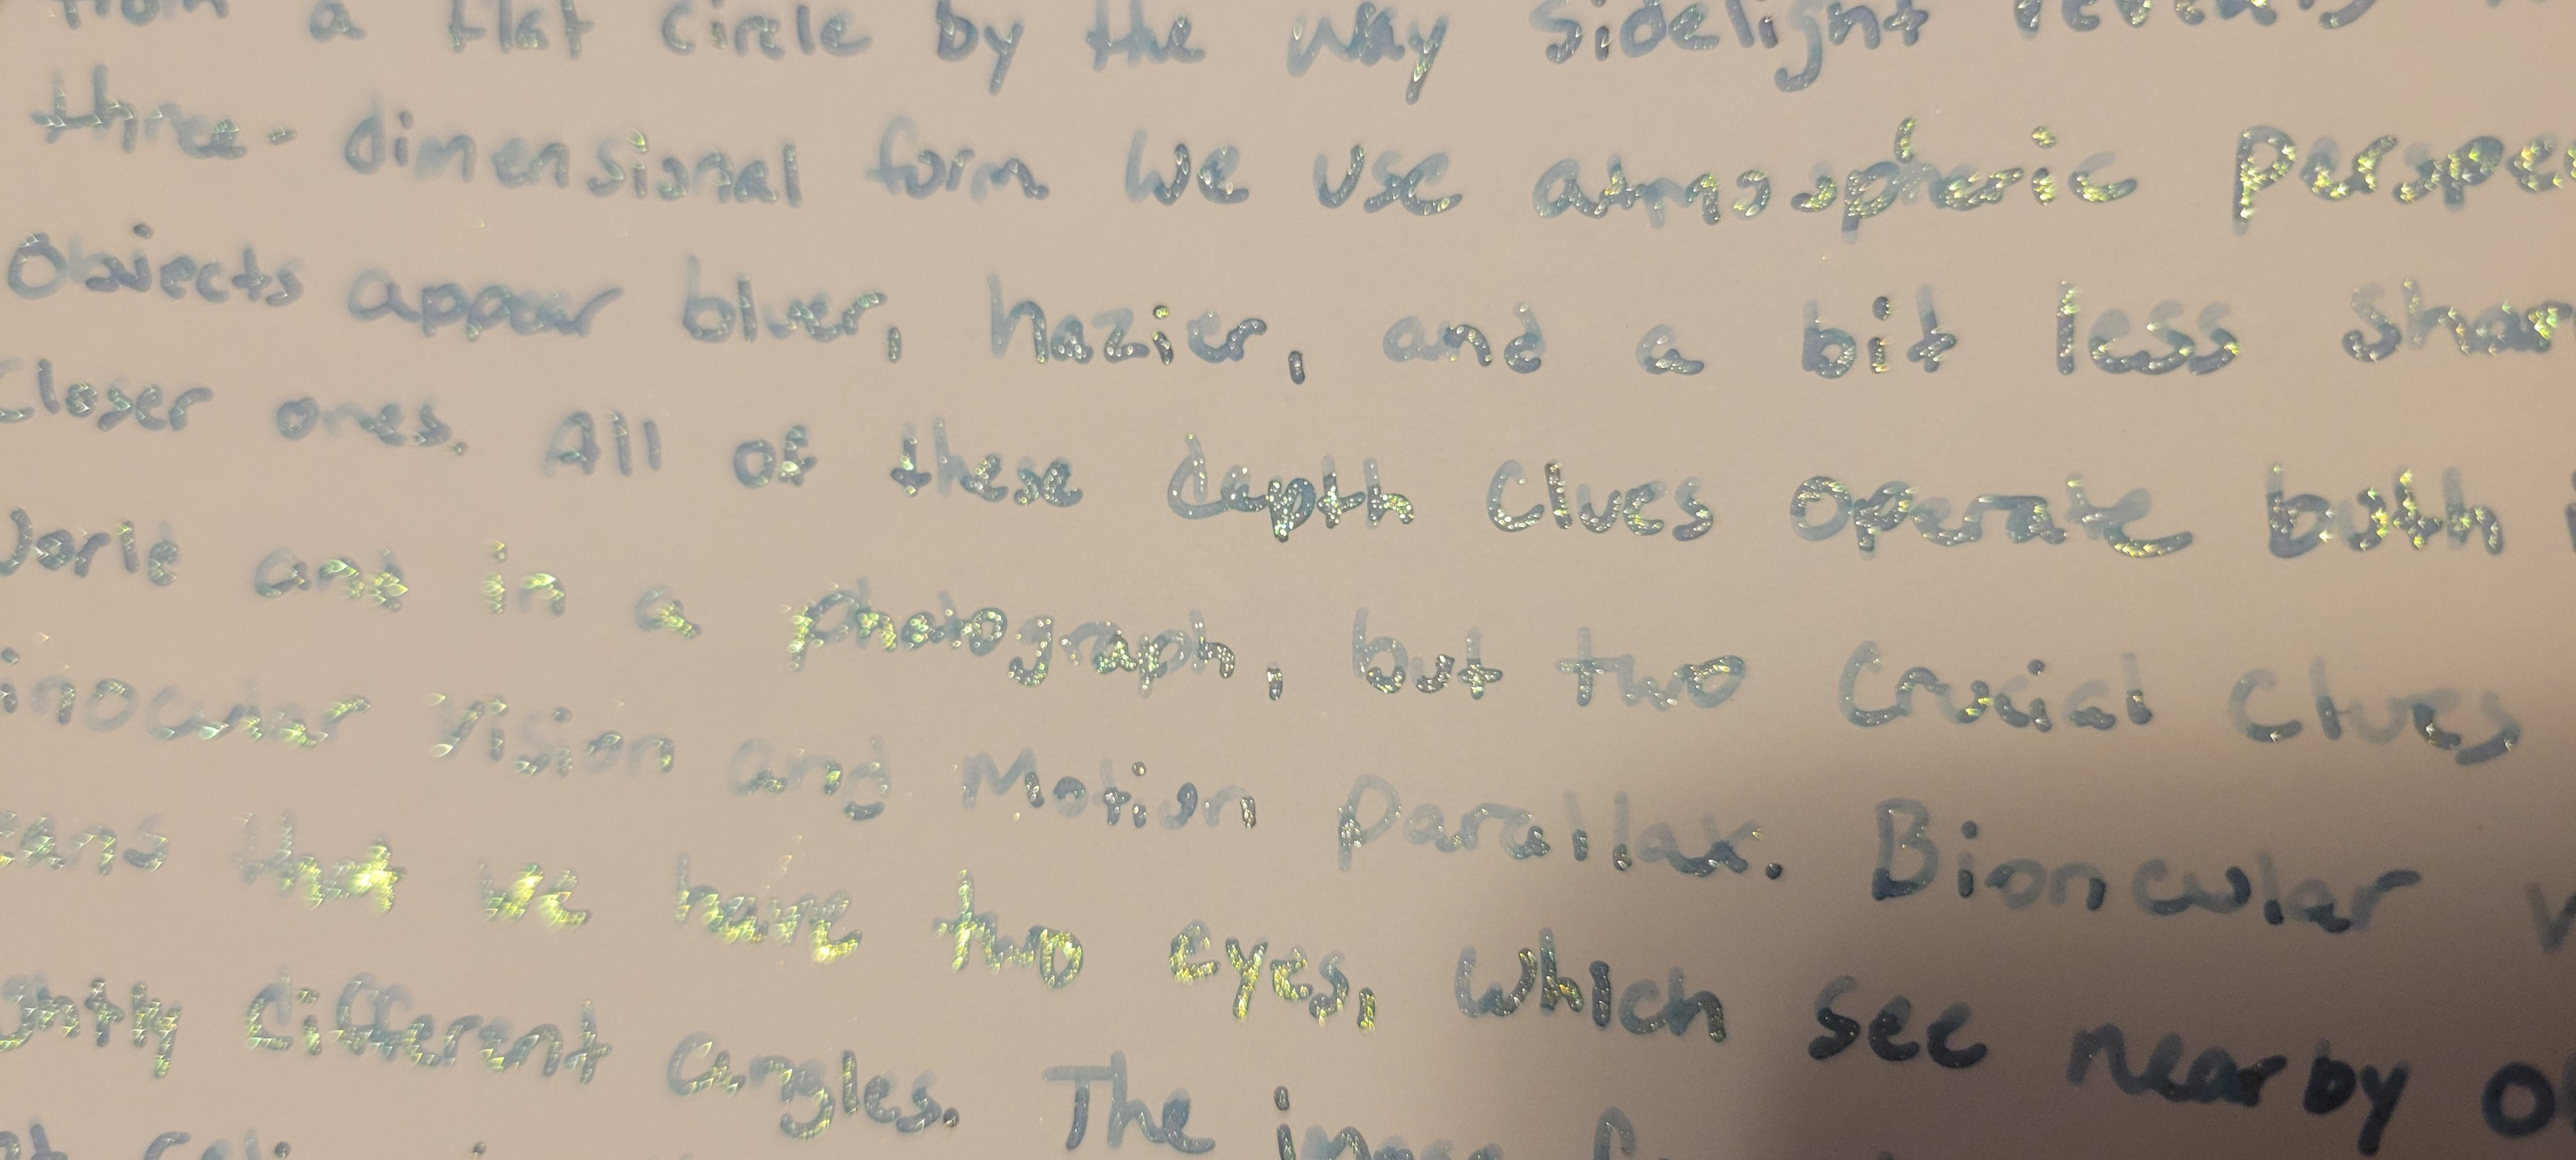 from a flat circle by the way sidelight reveals
three-dimensional form we use atmospheric perspe
Objects appear bluer, hazier, and a bit less shar
Closer ones. All of these depth clues operate both
and in a photograph, but two crucial clues
inocular vision and Motion parallax. Bioncular v
eans that we have two eyes, which see nearby o
ghtly different angles. The